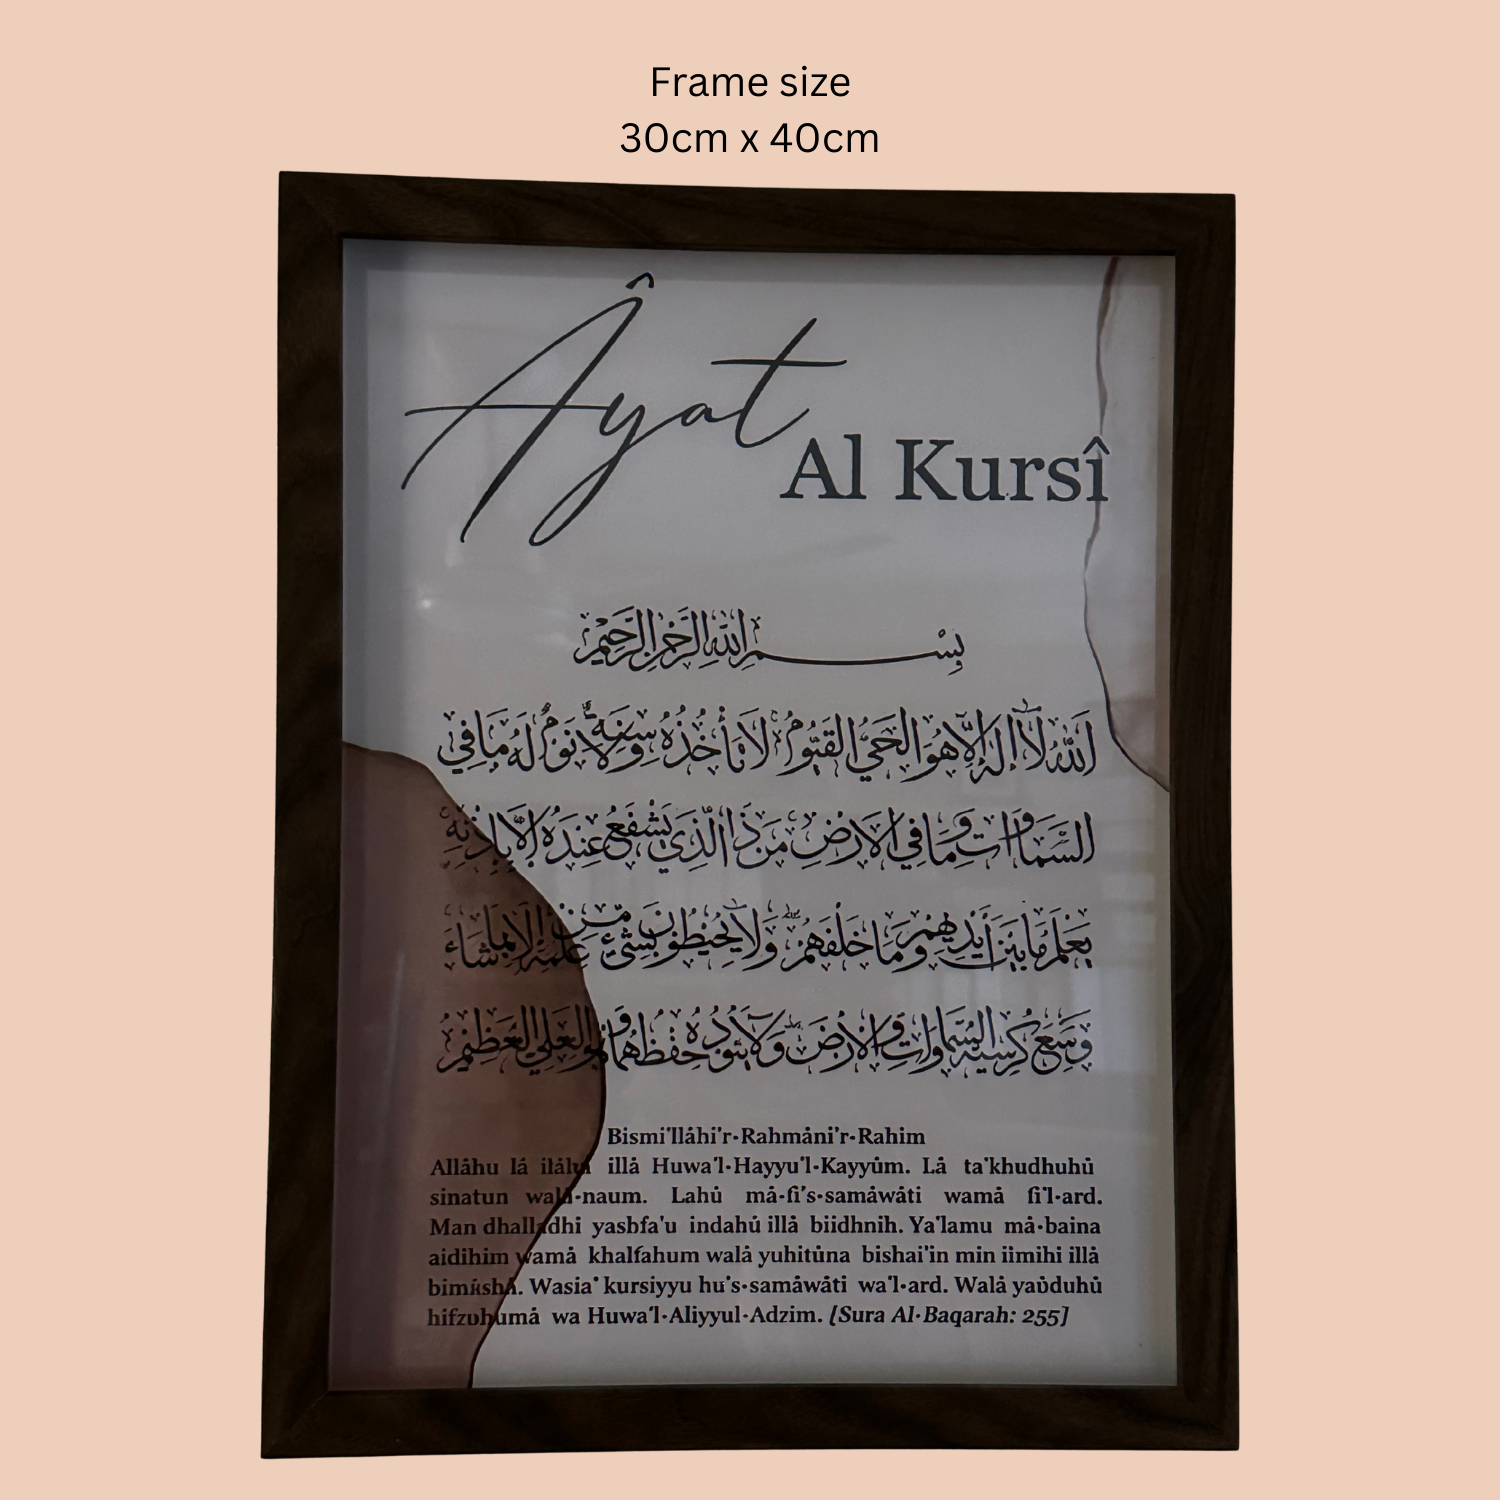 Frame size
30cm x 40cm
Âyat
Al Kursî
بِسْمِ اللهِ الرَّحْمٰنِ الرَّحِيْمِ
اَللّٰهُ لَآ اِلٰهَ اِلَّا هُوَ الْحَيُّ الْقَيُّوْمُ لَا تَأْخُذُهُ سِنَةٌ وَلَا نَوْمٌ لَهُ مَا فِي
السَّمَاوَاتِ وَمَا فِي الْاَرْضِ مَنْ ذَا الَّذِي يَشْفَعُ عِنْدَهُ اِلَّا بِاِذْنِهِ
يَعْلَمُ مَا بَيْنَ أَيْدِيهِمْ وَمَا خَلْفَهُمْ وَلَا يُحِيطُونَ بِشَيْءٍ مِّنْ عِلْمِهِ اِلَّا بِمَا شَاءَ
وَسِعَ كُرْسِيُّهُ السَّمَاوَاتِ وَالْاَرْضَ وَلَا يَئُودُهُ حِفْظُهُمَا وَهُوَ الْعَلِيُّ الْعَظِيْمُ
Bismi'llåhi'r-Rahmåni'r-Rahim
Allåhu lå ilåhe illå Huwa'l-Hayyu'l-Kayyům. Lå ta'khudhuhů
sinatun walå-naum. Lahů må-fi's-samåwåti wamå fi'l-ard.
Man dhalladhi yashfa'u indahů illå biidhnih. Ya'lamu må-baina
aidihim wamå khalfahum walå yuhitůna bishai'in min iimihi illå
bimåshå. Wasia' kursiyyu hu's-samåwåti wa'l-ard. Walå yaůduhů
hifzuhumå wa Huwa'l-Aliyyul-Adzim. [Sura Al-Baqarah: 255]